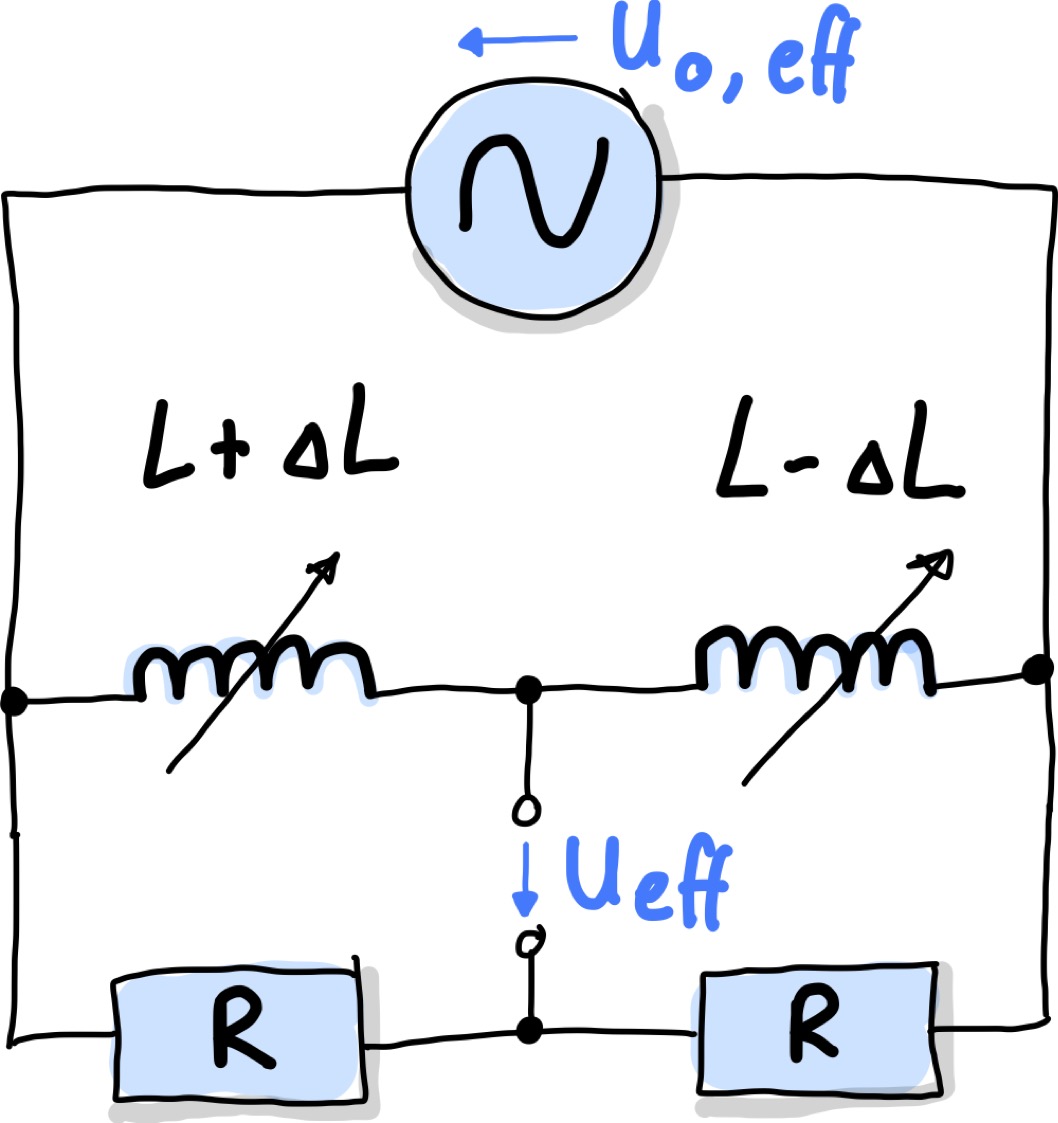 U₀, eff
L + ΔL
L - ΔL
Ueff
R
R